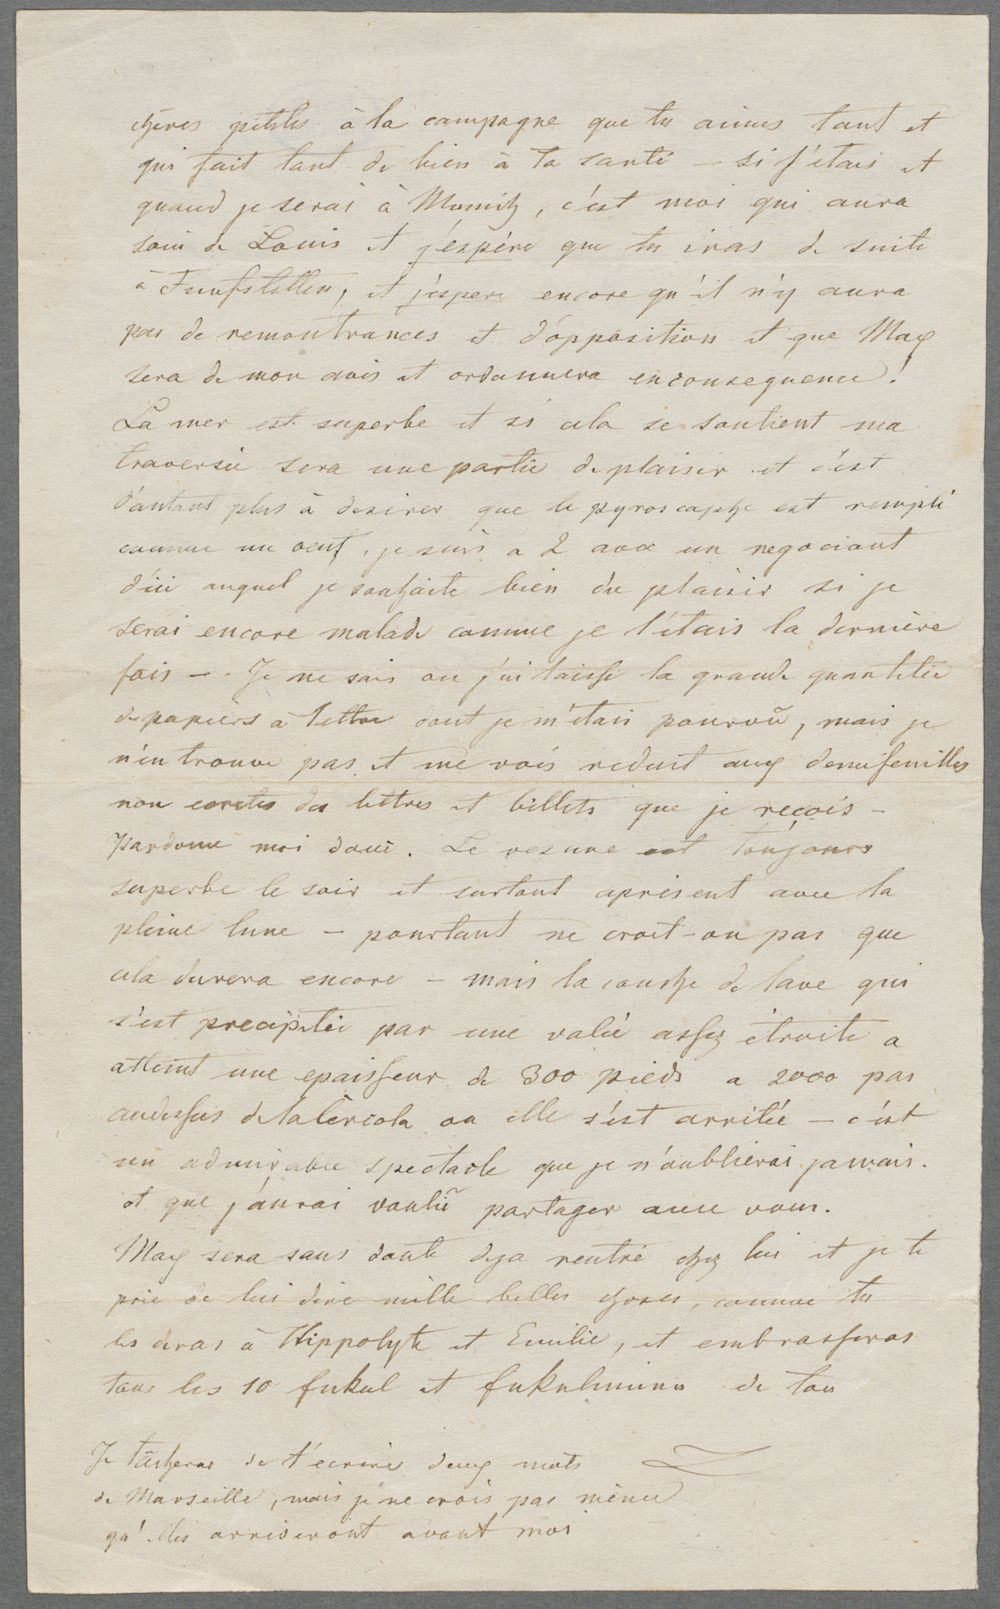 chères petites à la campagne que tu aimes tant et
qui fait tant de bien à ta santé – si j'étais et
quand je serai à Munich, c'est moi qui aura
soin de Louis et j'espère que tu iras de suite
à Funfstetten, et j'espere encore qu'il n'y aura
pas de remontrances et d'opposition et que Max
sera de mon avis et ordonnera enconsequence!
La mer est superbe et si cela se soutient ma
traversée sera une partie de plaisir et c'est
d'autant plus à desirer que le pyroscaphe est rempli
comme un oeuf, je suis a 2 avec un negociant
d'ici auquel je souhaite bien du plaisir si je
serai encore malade comme je l'étais la dernière
fois – Je ne sais ou j'ai laissé la grande quantitée
de papiers à lettre dont je m'étais pourvû, mais je
n'en trouve pas et me vois reduit aux demifeuilles
non ecrites des lettres et billets que je reçois –
Pardonne moi donc. Le vesuve est toujours
superbe le soir et surtout aprésent avec la
pleine lune – pourtant ne croit-on pas que
cela durera encore – mais la couche de lave qui
s'est precipitée par une valée assez étroite a
atteint une epaisseur de 300 pieds a 2000 pas
audessus de la ou elle s'est arritée – c'est
un admirable spectacle que je n'oublierai jamais.
et que j'aurai voulû partager avec vous.
Max sera sans doute deja rentré chez lui et je te
prie de lui dire mille belles choses, comme tu
les diras à Hippolyte et Emilie, et embrasseras
tous les 10 fukel et de ton
Je tâcherai de t'écrire deux mots
de Marseille, mais je ne crois pas même
qu'elles arriveront avant moi